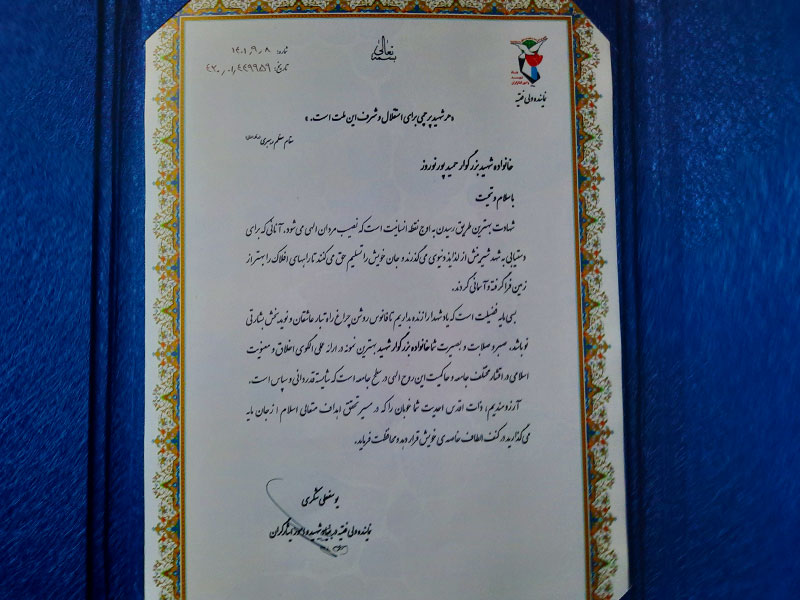 بسمه تعالی
شماره: ۱۴۰۱٫۹٫۸
تاریخ: ۴۲۰٫۰۱٫۴۴۹۹۵۹
نماینده ولی فقیه
«هر شهید پرچمی برای استقلال و شرف این ملت است.»
مقام معظم رهبری
خانواده شهید بزرگوار حمید پور نوروز
با سلام و تحیت
شهادت بهترین طریق رسیدن به اوج نقطه انسانیت است که نصیب مردان الهی می شود، آنانی که برای
دستیابی به شهد شیرینش از لذایذ دنیوی می گذرند و جان خویش را تسلیم حق می کنند تا راههای افلاک را بهتر از
زمین فرا گرفته و آسمانی گردند.
بسی مایه فضیلت است که یاد شهدا را زنده بداریم تا فانوس روشن چراغ راه تبار عاشقان و نوید بخش بشارتی
نو باشد، صبر و صلابت و بصیرت شما خانواده بزرگوار شهید بهترین نمونه در ارائه عملی الگوی اخلاق و معنویت
اسلامی در اقشار مختلف جامعه و حاکمیت این روح الهی در سطح جامعه است که شایسته قدردانی و سپاس است.
آرزومندیم، ذات اقدس احدیت شما خوبان را که در مسیر تحقق اهداف متعالی اسلام از جان مایه
می گذارید در کنف الطاف خاصه ی خویش قرار دهد و محافظت فرماید.
یوسفعلی شکری
نماینده ولی فقیه در بنیاد شهید و امور ایثارگران